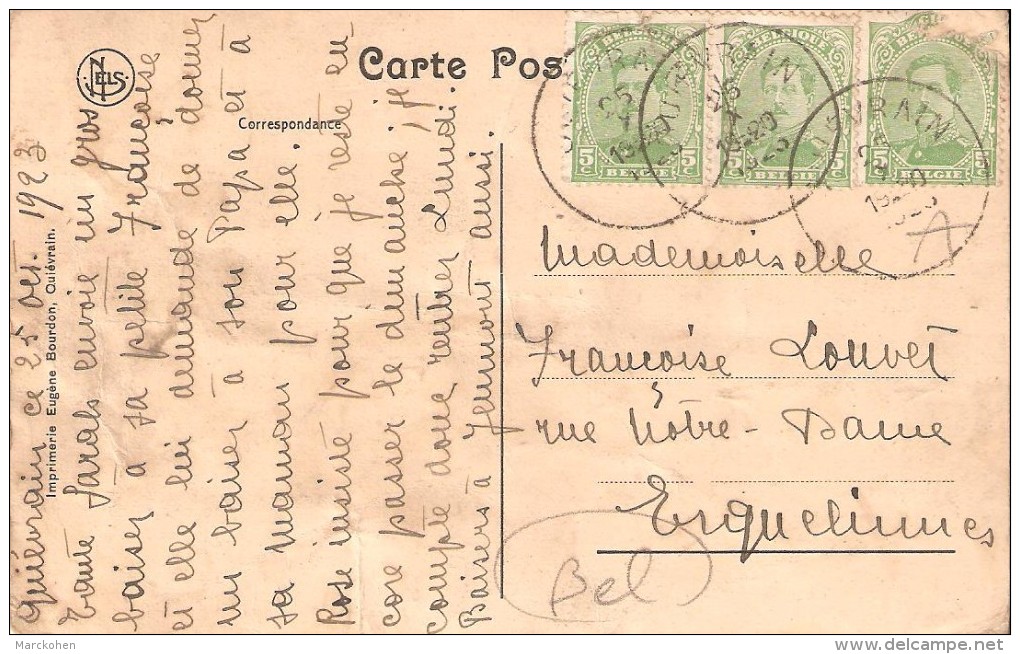 Carte Pos
Correspondance
NELS
Imprimerie Eugène Bourdon, Quiévrain.
Quiévrain ce 25 oct. 1923
Tante Sarah envoie un gros
baiser à sa petite Françoise
et elle lui demande de donner
un baiser à son Papa et à
sa maman pour elle.
Rose insiste pour que je reste en
core passer le dimanche; je
compte donc rentrer Lundi.
Baisers à Jeumont aussi.
BELGIQUE
5 C 5 C
BELGIE
BELGIQUE
5 C 5 C
BELGIË
5 C 5 C
BELGIE
QUIEVRAIN
25
X
18-20
1923
A
Mademoiselle
Françoise Louvet
rue Nôtre-Dame
Erquelinnes
Bel
Marckohen
delcampe.net